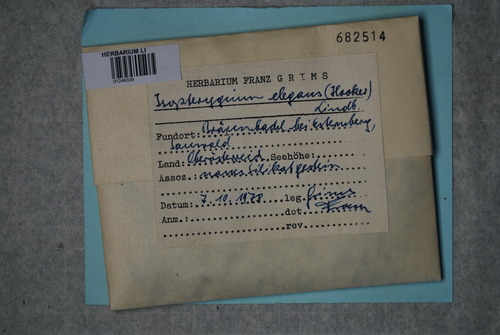 682514
HERBARIUM LI
HERBARIUM FRANZ GRIMS
Isopterygium elegans (Hooker)
Lindb.
Fundort: bei Esternberg,
Sauwald
Land: Oberösterreich Seehöhe:
Assoz.: nasses Silikatgestein
Datum: 7.10.1978 leg. Grims
Anm.: det. Grims
rev.